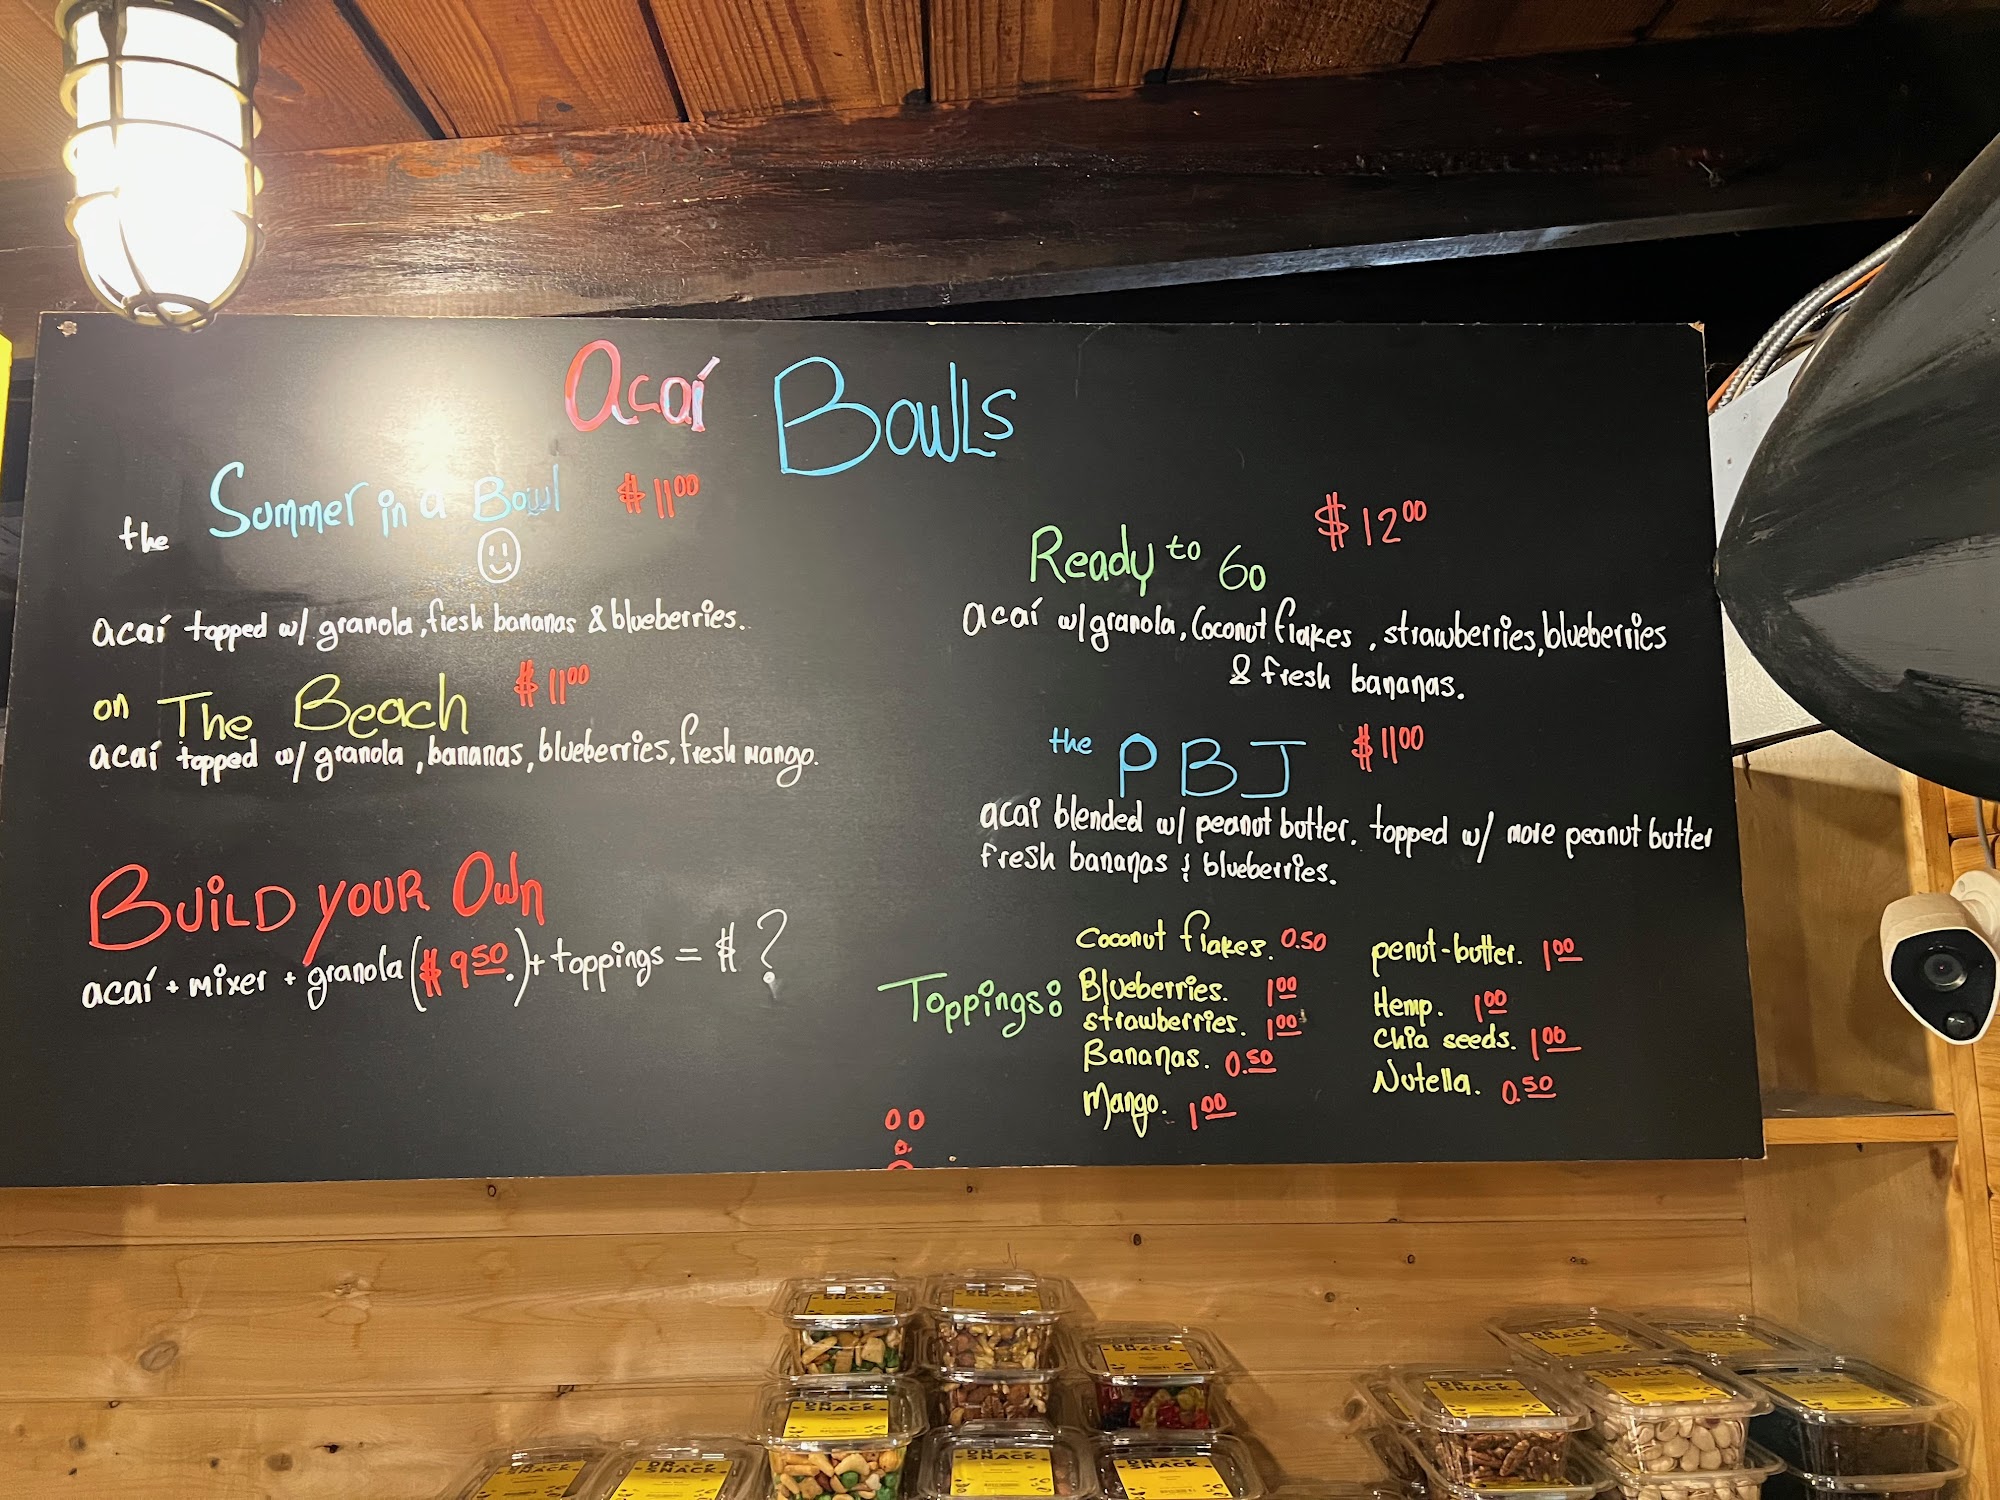 Acaí Bowls
the Summer in a Bowl $1100
acaí topped w/ granola, fresh bananas & blueberries.
on The Beach $1100
acaí topped w/ granola, bananas, blueberries, fresh mango.
BUILD YOUR Own
acaí + mixer + granola ($9.50.) + toppings = $ ?
Ready to Go $12.00
acaí w/granola, Coconut flakes, strawberries, blueberries
& fresh bananas.
the PBJ $11.00
acai blended w/ peanut butter. topped w/ more peanut butter
fresh bananas & blueberries.
Toppings:
Coconut flakes. 0.50
Blueberries. 1.00
strawberries. 1.00
Bananas. 0.50
Mango. 1.00
penut-butter. 1.00
Hemp. 1.00
Chia seeds. 1.00
Nutella. 0.50
DR SNACK
DR SNACK
DR SNACK
DR SNACK